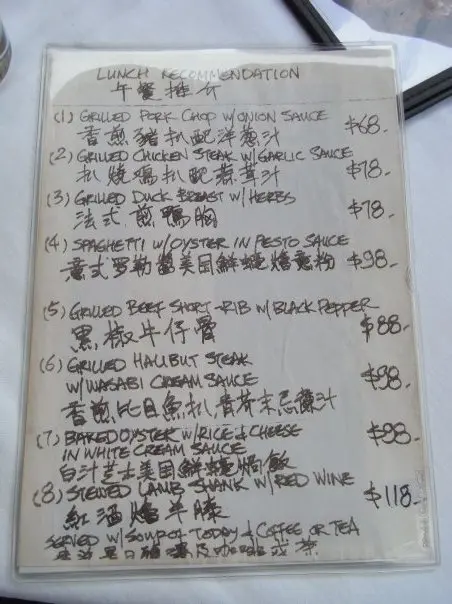 LUNCH RECOMMENDATION
午餐推介
(1) GRILLED PORK CHOP W/ONION SAUCE $68.-
香煎豬扒配洋葱汁
(2) GRILLED CHICKEN STEAK W/GARLIC SAUCE $78.-
扒燒鷄扒配蒜茸汁
(3) GRILLED DUCK BREAST W/HERBS $78.-
法式煎鴨胸
(4) SPAGHETTI W/OYSTER IN PESTO SAUCE $98.-
意式罗勒醬美国鮮蠔燴意粉
(5) GRILLED BEEF SHORT-RIB W/BLACK PEPPER $88.-
黑椒牛仔骨
(6) GRILLED HALIBUT STEAK
W/WASABI CREAM SAUCE $98.-
香煎比目魚扒青芥末忌廉汁
(7) BAKED OYSTER W/RICE & CHEESE $98.-
IN WHITE CREAM SAUCE
白汁芝士美国鮮蠔焗飯
(8) STEWED LAMB SHANK W/RED WINE $118.-
紅酒燴羊膝
SERVED W/SOUP OF TODAY & COFFEE OR TEA
及咖啡或茶